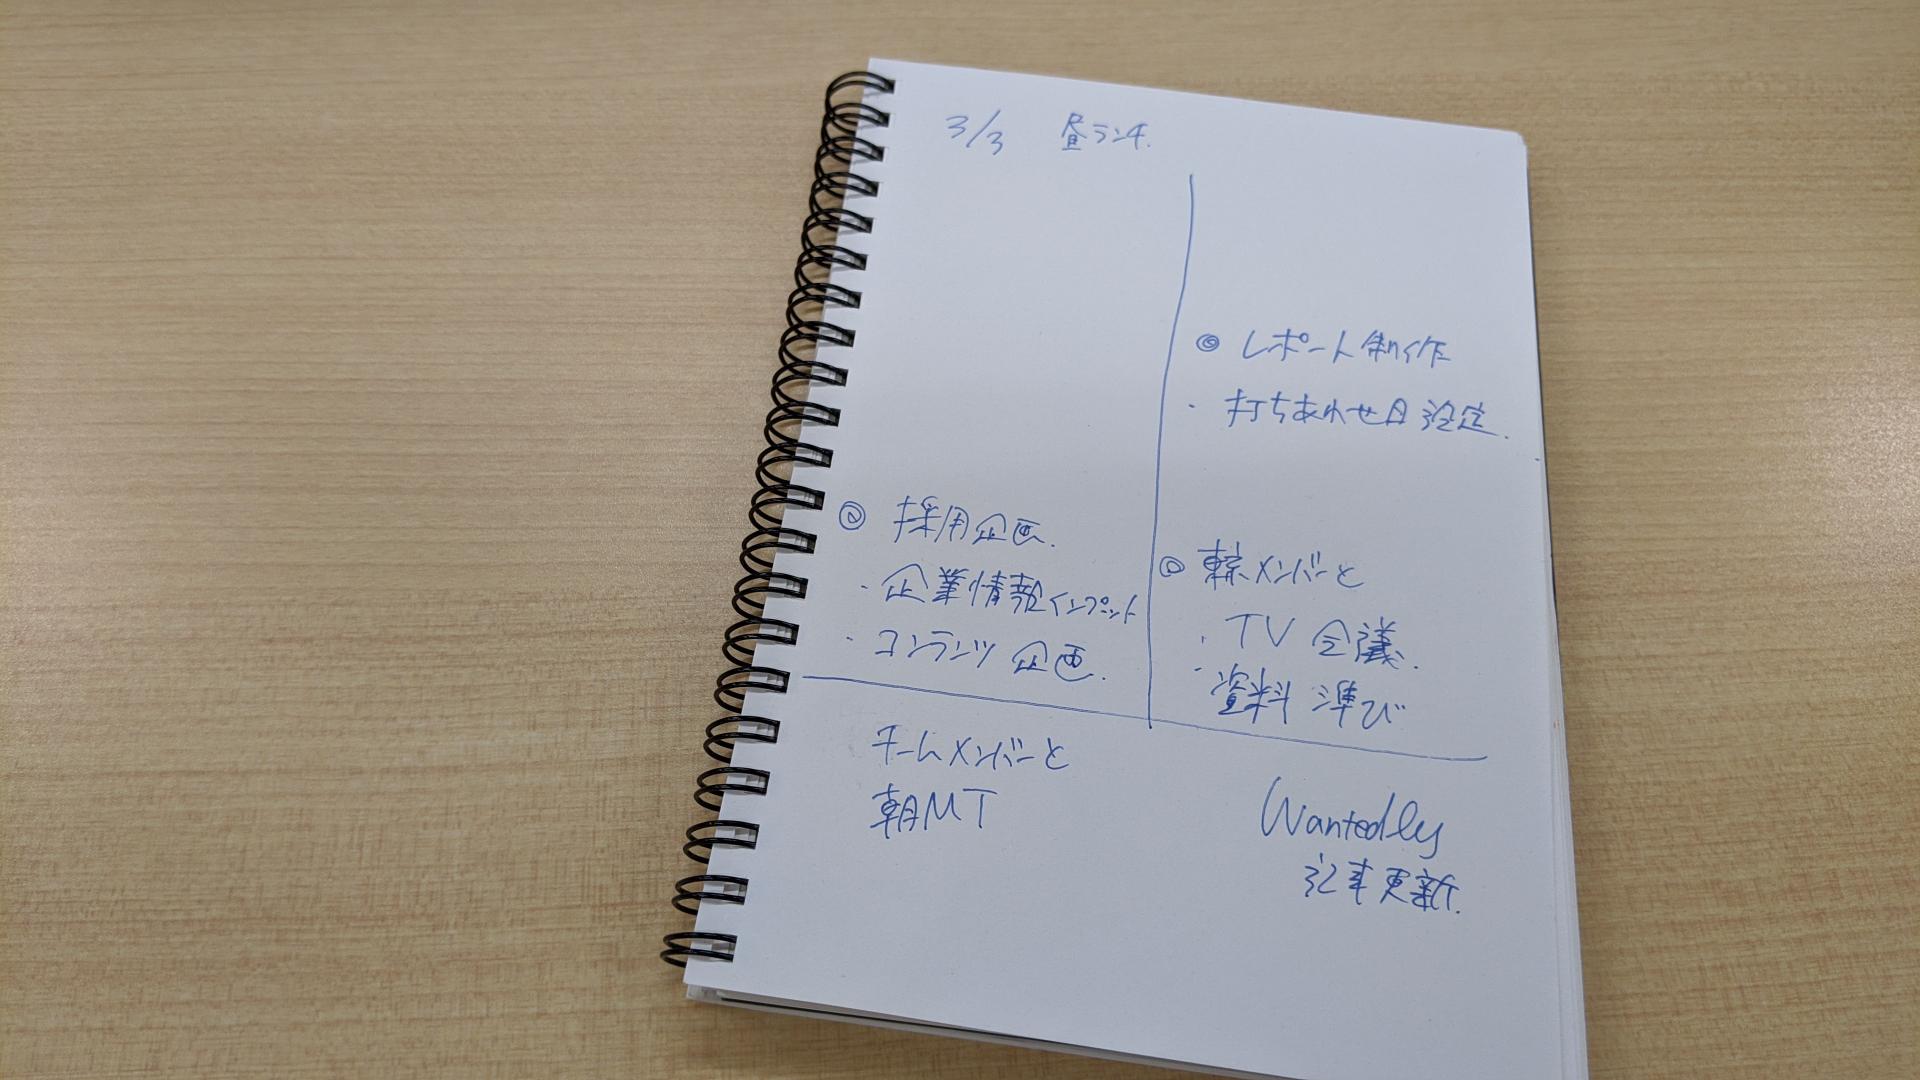 3/3 昼ランチ.
◎ レポート制作
・打ちあわせ日設定.
◎ 採用企画.
・企業情報インプット
・コンテンツ企画.
◎ 東京メンバーと
・TV会議.
・資料準び
チームメンバーと
朝MT
Wantedly
記事更新.